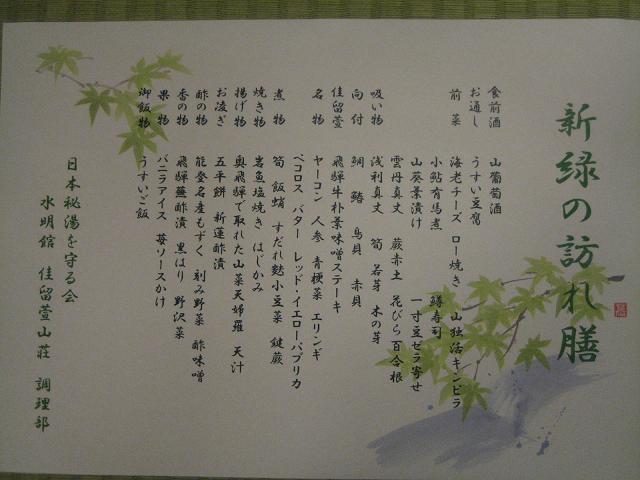 新緑の訪れ膳
食前酒 山葡萄酒
お通し うすい豆腐
前菜 海老チーズロー焼き 山独活キンピラ
小鮎有馬煮 鱒寿司
山葵葉漬け 一寸豆ゼラ寄せ
雲丹真丈 蕨赤土 花びら百合根
吸い物 浅利真丈 筍 若芽 木の芽
向付 鯛 鰭 鳥貝 赤貝
佳留萱 飛騨牛朴葉味噌ステーキ
名物 ヤーコン 人参 青梗菜 エリンギ
ペコロス バター レッド・イエローパプリカ
煮物 筍 飯蛸 すだれ麩 小豆菜 鍵蕨
焼き物 岩魚塩焼き はじかみ
揚げ物 奥飛騨で取れた山菜天婦羅 天汁
お凌ぎ 五平餅 新蓮酢漬
酢の物 能登名産もずく 刻み野菜 酢味噌
香の物 飛騨蕪酢漬 黒はり 野沢菜
果物 バニラアイス 苺ソースかけ
御飯物 うすいご飯
日本秘湯を守る会
水明館 佳留萱山荘 調理部